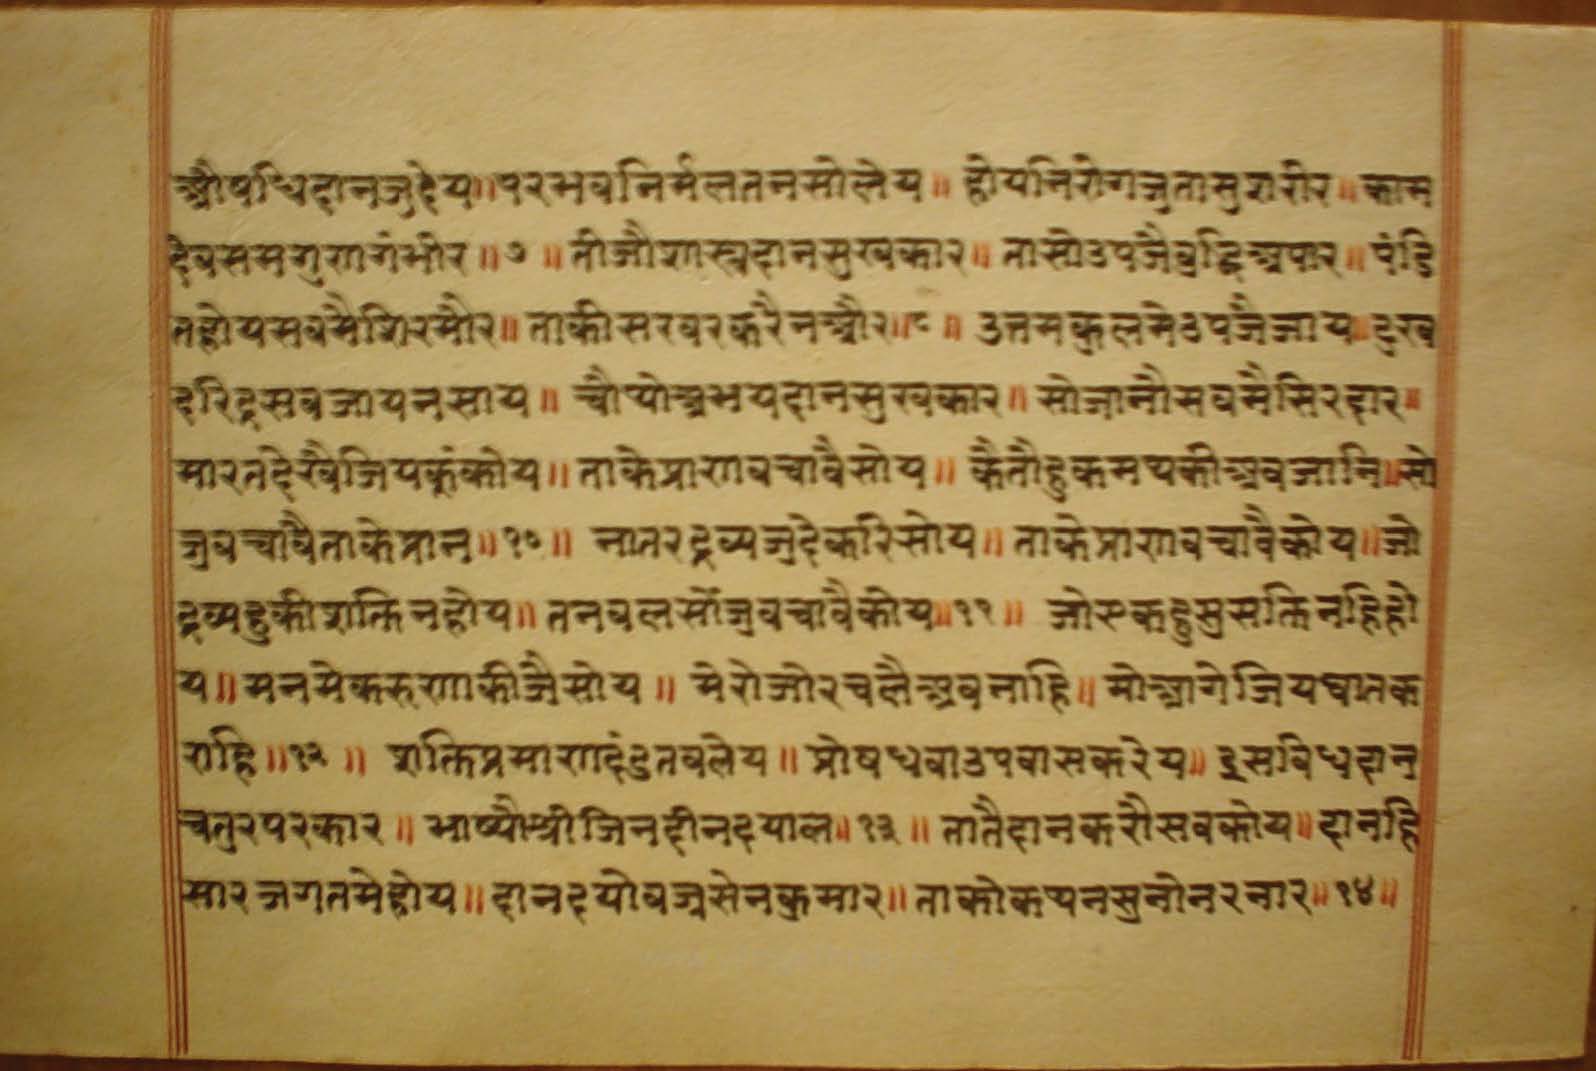 औषधिदानजुदेय॥परभवनिर्मलतनसोलेय॥ होयनिरोगजुतासुशरीर॥काम
देवसमगुणगंभीर॥७॥ तीजौशास्त्रदानसुखकार॥ तासोउपजैवुद्धिअपार॥ पंडि
तहोयसबमैशिरमौर॥ ताकीसरवरकरैनऔर॥८॥ उत्तमकुलमेउपजैजाय॥दुख
दरिद्रसबजायनसाय॥ चौथोअभयदानसुखकार॥ सोजानौसवमैसिरदार॥
मारतदेखैजियकूंकोय॥ ताकेप्राणवचावैसोय॥ कैतौहुकमथकीअवजानि॥सो
जुवचावैताकेप्रान॥१०॥ नातरद्रव्यजुदेकरिसोय॥ ताकेप्राणवचावैकोय॥जो
द्रव्यहुकीशक्तिनहोय॥ तनवलसोंजुवचावैकोय॥११॥ जोएकहुसुसक्तिनहिहो
य॥मनमेकरुणाकीजैसोय॥ मेरोजोरचलैअवनाहि॥ मोआगेजियघातक
राहि॥१२॥ शक्तिप्रमाणदंडतवलेय॥ प्रोषधवाउपवासकरेय॥ इसविधदान
चतुरपरकार॥ भाष्यौश्रीजिनदीनदयाल॥१३॥ तातैदानकरौसवकोय॥ दानहि
सारजगतमेहोय॥ दानदयोवज्रसेनकुमार॥ ताकोकथनसुनोनरनार॥१४॥